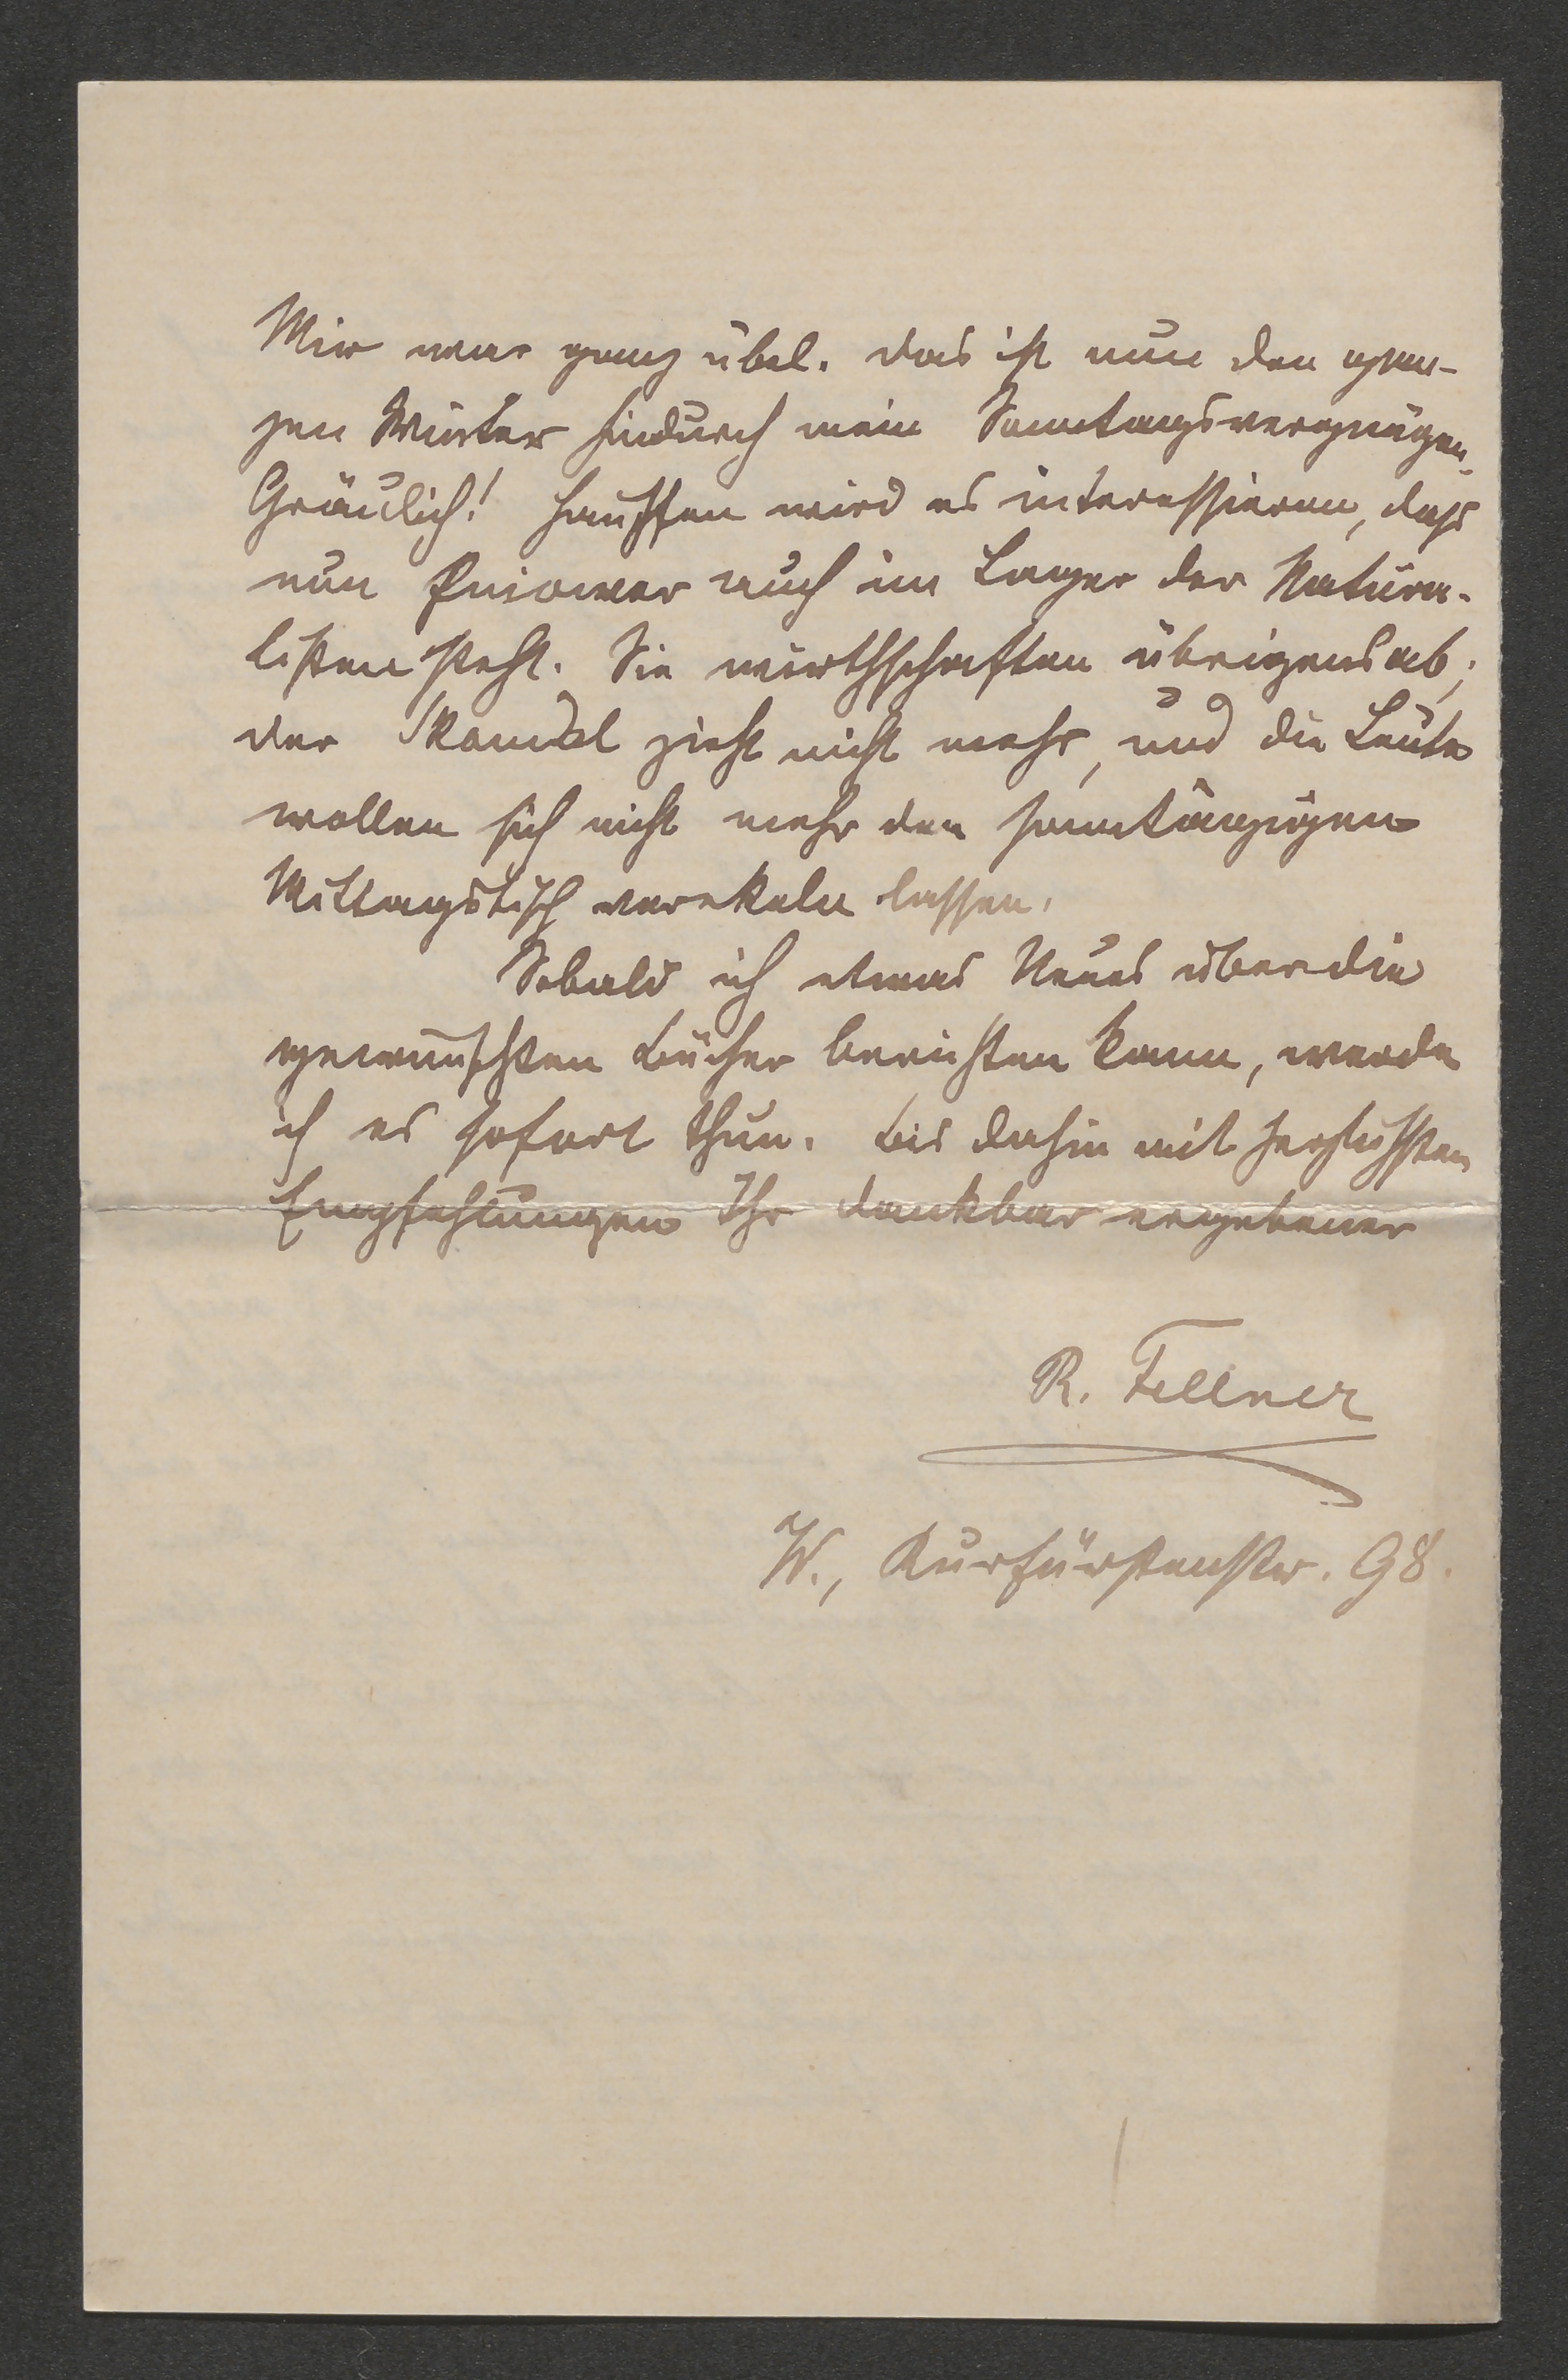 Mir war ganz übel. Das ist nun den gan-
zen Winter hindurch mein Sonntagsvergnügen.
Gräulich! Hauffen wird es interessieren, dass
nun Pniower auch im Lager der Natura-
listen steht. Sie wirthschaften übrigens ab;
der Skandal zieht nicht mehr, und die Leute
wollen sich nicht mehr den sonntägigen
Mittagstisch verekeln lassen.
Sobald ich etwas Neues über die
gewünschten Bücher berichten kann, werde
ich es sofort thun. Bis dahin mit herzlichsten
Empfehlungen Ihr dankbar ergebener
R. Fellner
W., Kurfürstenstr. 98.